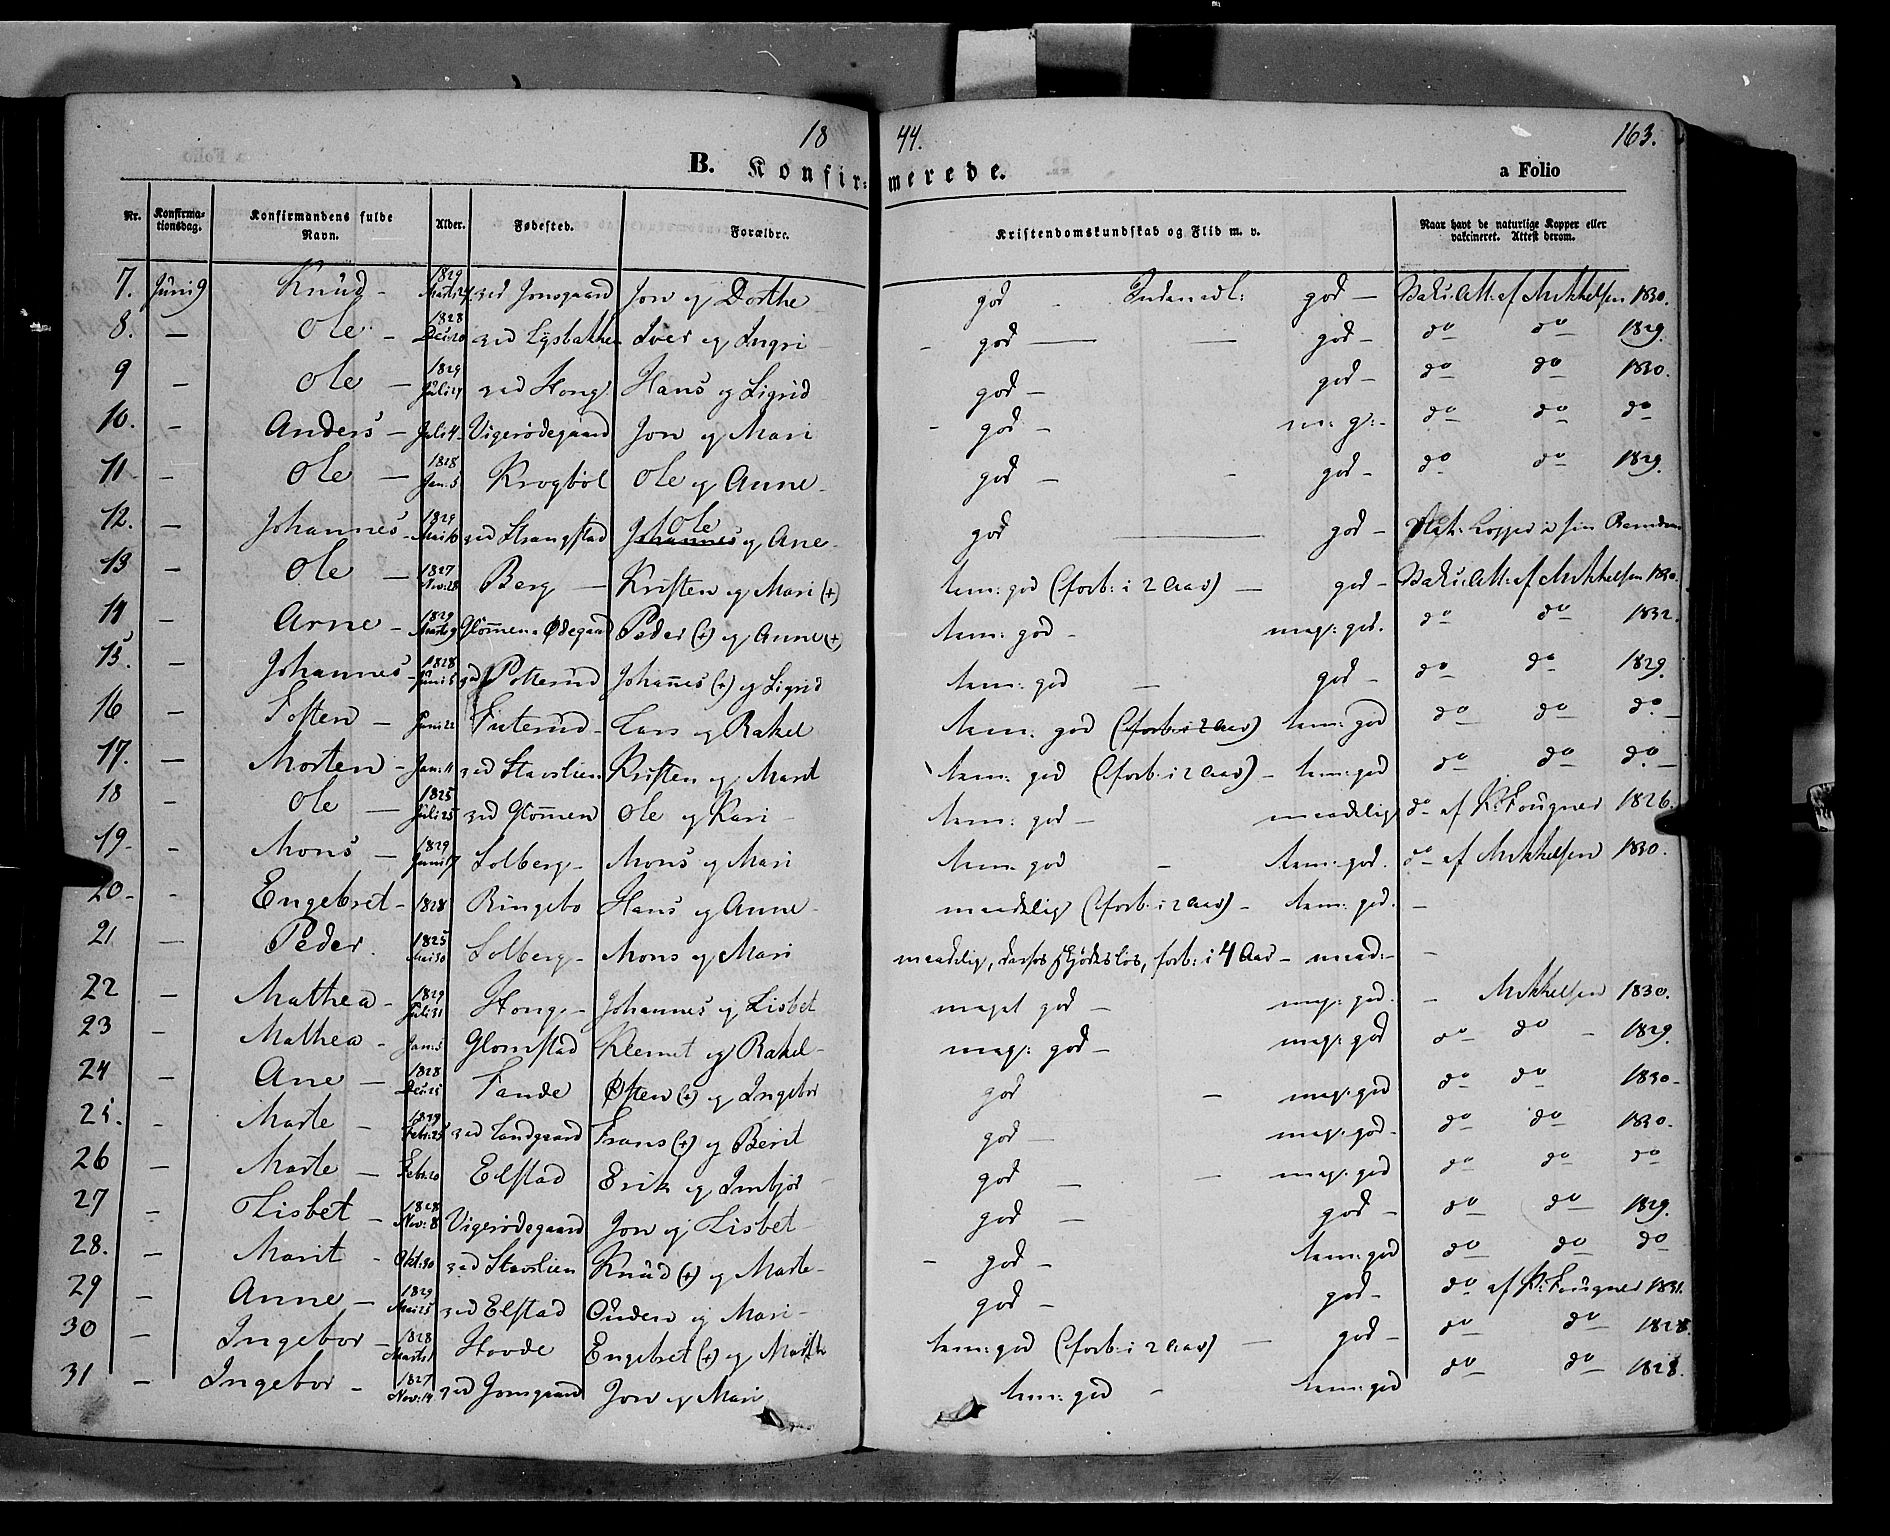 18 44. 163.
B. Konfirmerede. a Folio
Nr. Konfirmationsdag. Konfirmandens fulde Navn. Alder. Fødested. Forældre. Kristendomskundskab og Flid m. v. Naar havt de naturlige Kopper eller vakcineret. Attest derom.
7. Juni 9 Knud - 1829 Marts 24 ved Jonsgaard Jon og Dorthe god - Udenadl: god - Vakc: Att: af Mikkelsen 1830.
8. - Ole - 1828 Dec: 20 ved Lysbakken Iver og Ingri - god - - god - do do 1829.
9 - Ole - 1829 Juli 14 ved Hong Hans og Sigrid god - god - do do 1830.
10. - Anders - Juli 4 Vigerødegaard Jon og Mari - god - m: g: - do do do
11 - Ole - 1828 Jan: 5 Krogböl Ole og Anne - god - - god - do do 1829.
12. - Johannes - 1829 Mai 10 ved Strangstad Ole Johannes og Ane - god - god - Nat: Kopper i sin Barndom
13 - Ole - 1827 Nov: 28 Berg - Kristen og Mari (+) tem: god (forb: i 2 Aar) - god - Vakc: Att: af Mikkelsen 1830.
14 - Arne - 1829 Marts 9 Glom̄ens Ødegaard Peder (+) og Anne (+) tem: god - meg: god. do do 1832.
15. - Johannes - 1828 Juni 5 ved Potterud Johan̄es (+) og Sigrid tem: god - god - do do 1829.
16 - Tosten - Juni 22 Futerud - Lars og Rakel tem: god (forb: i 2 Aar) tem: god do do do -
17. - Morten - Jan: 11 ved Stavslien Kristen og Marit tem: god (forb: i 2 Aar) - tem: god do do do -
18 - Ole - 1825 Juli 25 ved Glom̄en Ole og Kari - tem: god - maadelig do af K: Fougner 1826.
19. - Mons - 1829 Juni 17 Solberg - Mons og Mari tem: god - tem: god. do af Mikkelsen 1830.
20. - Engebret - 1828 Ringebo Hans og Anne - maadelig (forb: i 2 Aar) - tem: god. -
21 - Peder. 1825 Mai 30 Solberg - Mons og Mari maadelig, derfor skjödeslös, forb: i 4 Aar - maad: - -
22 - Mathea - 1829 Juli 31 Hong - Johannes og Lisbet meget god - meg: god. - Mikkelsen 1830.
23 - Mathea - Jan: 5 Glomstad Klemet og Rakel - meg: god - meg: god do do - 1829.
24 - Ane - 1828 Dec: 25 Fande Østen (+) og Ingebor god - meg: god do do 1830 -
25. - Marte - 1829 Febr: 25 ved Landgaard Frans (+) og Berit god - meg: god - do do 1830 -
26 - Marte - Febr: 20 Elstad Erik og Imbjör - god - - meg: god do do do
27 - Lisbet - 1828 Nov: 8 Vigerødegaard Jon og Lisbet - god - god - do do 1829.
28. - Marit - Okt: 30 ved Stavslien Knud (+) og Marte - - god - tem: god do do do
29 - Anne - 1829 Mai 25 ved Elstad Ouden og Mari - god - god - do af K: Fougner 1831.
30 - Ingebor - 1828 Marts 1 Hovde Engebret (+) og Marthe tem: god (forb: i 2 Aar) - god - do do 1828.
31 - Ingebor - 1827 Nov: 14 ved Jonsgaard Jon og Mari tem: god - tem: god do do 1828.